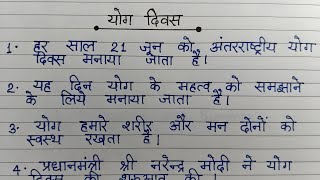 योग दिवस
1. हर साल 21 जून को अंतरराष्ट्रीय योग
दिवस मनाया जाता है।
2. यह दिन योग के महत्व को समझाने
के लिये मनाया जाता है।
3. योग हमारे शरीर और मन दोनों को
स्वस्थ रखता है।
4. प्रधानमंत्री श्री नरेन्द्र मोदी ने योग
दिवस की शुरुआत की